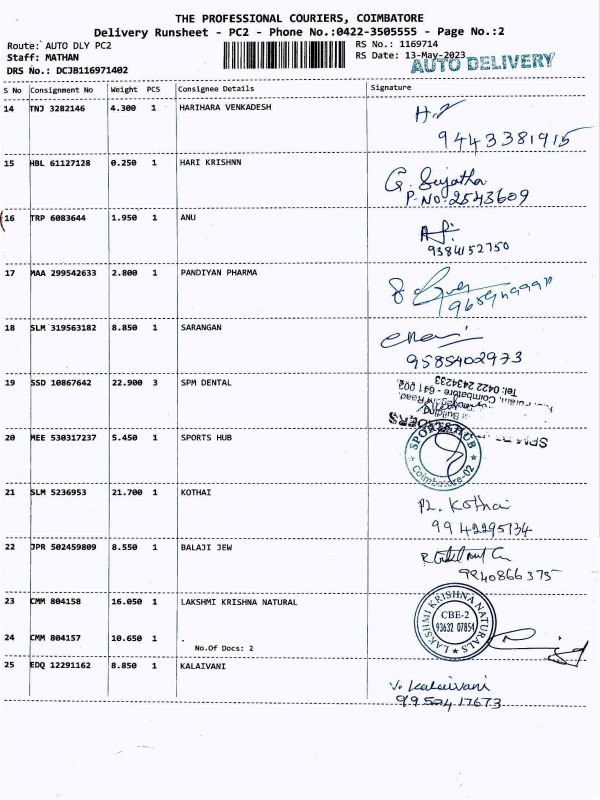 THE PROFESSIONAL COURIERS, COIMBATORE
Delivery Runsheet - PC2 - Phone No.:0422-3505555 - Page No.:2
Route: AUTO DLY PC2 RS No.: 1169714
Staff: MATHAN RS Date: 13-May-2023
DRS No.: DCJB116971402 AUTO DELIVERY
S No Consignment No Weight PCS Consignee Details Signature
14 TNJ 3282146 4.300 1 HARIHARA VENKADESH
9443381915
15 HBL 61127128 0.250 1 HARI KRISHNN
G. Sujatha
P.NO:2543609
16 TRP 6083644 1.950 1 ANU
9384152750
17 MAA 299542633 2.800 1 PANDIYAN PHARMA
18 SLM 319563182 8.850 1 SARANGAN
9585402973
19 SSD 10867642 22.900 3 SPM DENTAL
Coimbatore - 641 002
Tel: 0422 2434233
20 MEE 530317237 5.450 1 SPORTS HUB
SPORTS HUB
Coimbatore-02
21 SLM 5236953 21.700 1 KOTHAI
PL. Kothai
9942295134
22 JPR 502459809 8.550 1 BALAJI JEW
9840866375
23 CMM 804158 16.050 1 LAKSHMI KRISHNA NATURAL
LAKSHMI KRISHNA NATURALS
CBE-2
93632 07854
24 CMM 804157 10.650 1 .
No.Of Docs: 2
25 EDQ 12291162 8.850 1 KALAIVANI
V. Kalaivani
9952417673